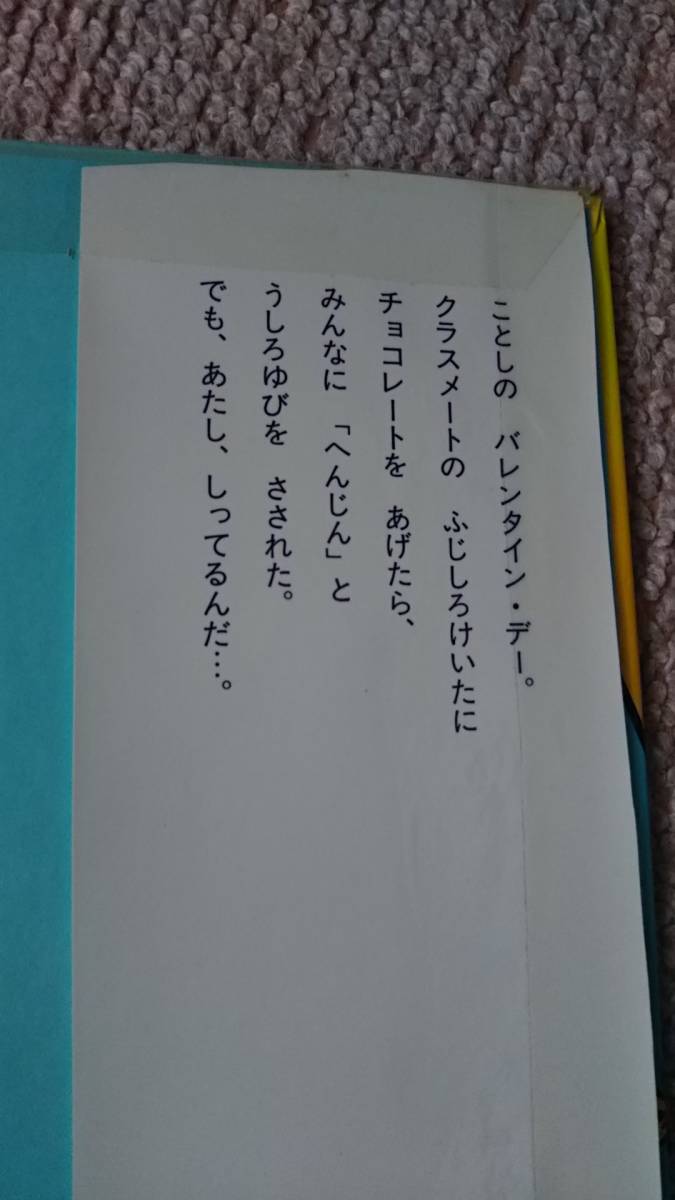 ことしの　バレンタイン・デー。
クラスメートの　ふじしろけいたに
チョコレートを　あげたら、
みんなに　「へんじん」と
うしろゆびを　さされた。
でも、あたし、しってるんだ…。